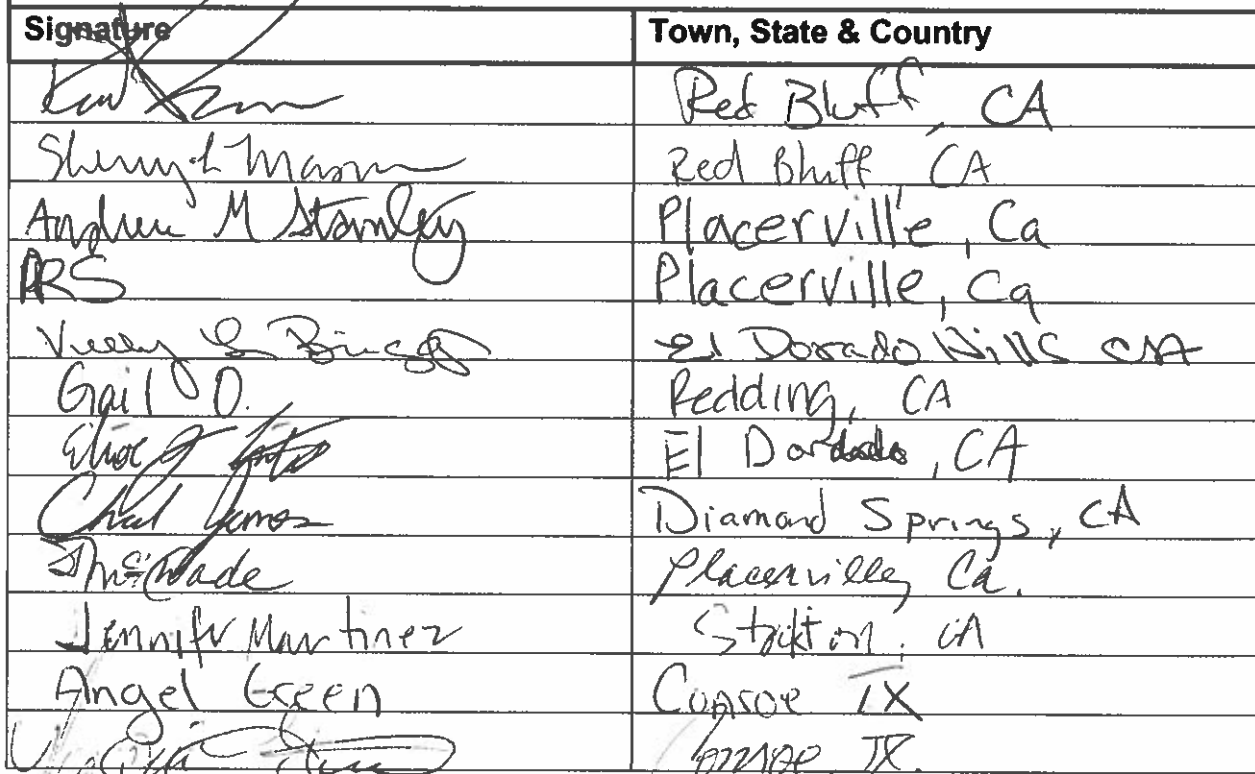 Signature Town, State & Country
Red Bluff, CA
Sherry L Mason Red Bluff CA
Andrew M Stanley Placerville, Ca
ARS Placerville, Ca
Briggs El Dorado Hills CA
Gail D. Redding, CA
El Dorado, CA
Chad James Diamond Springs, CA
McDade Placerville, Ca.
Jennifr Martinez Stockton, CA
Angel Green Conroe TX
Conroe TX.